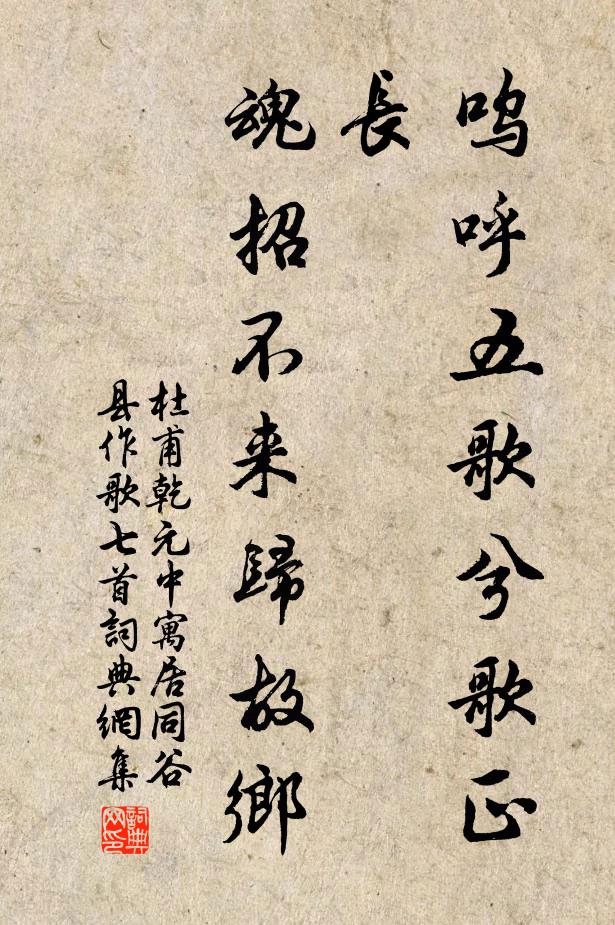 呜呼五歌兮歌正
長
魂招不来歸故鄉
杜甫乾元中寓居同谷
县作歌七首詞典網集
詞典
网印